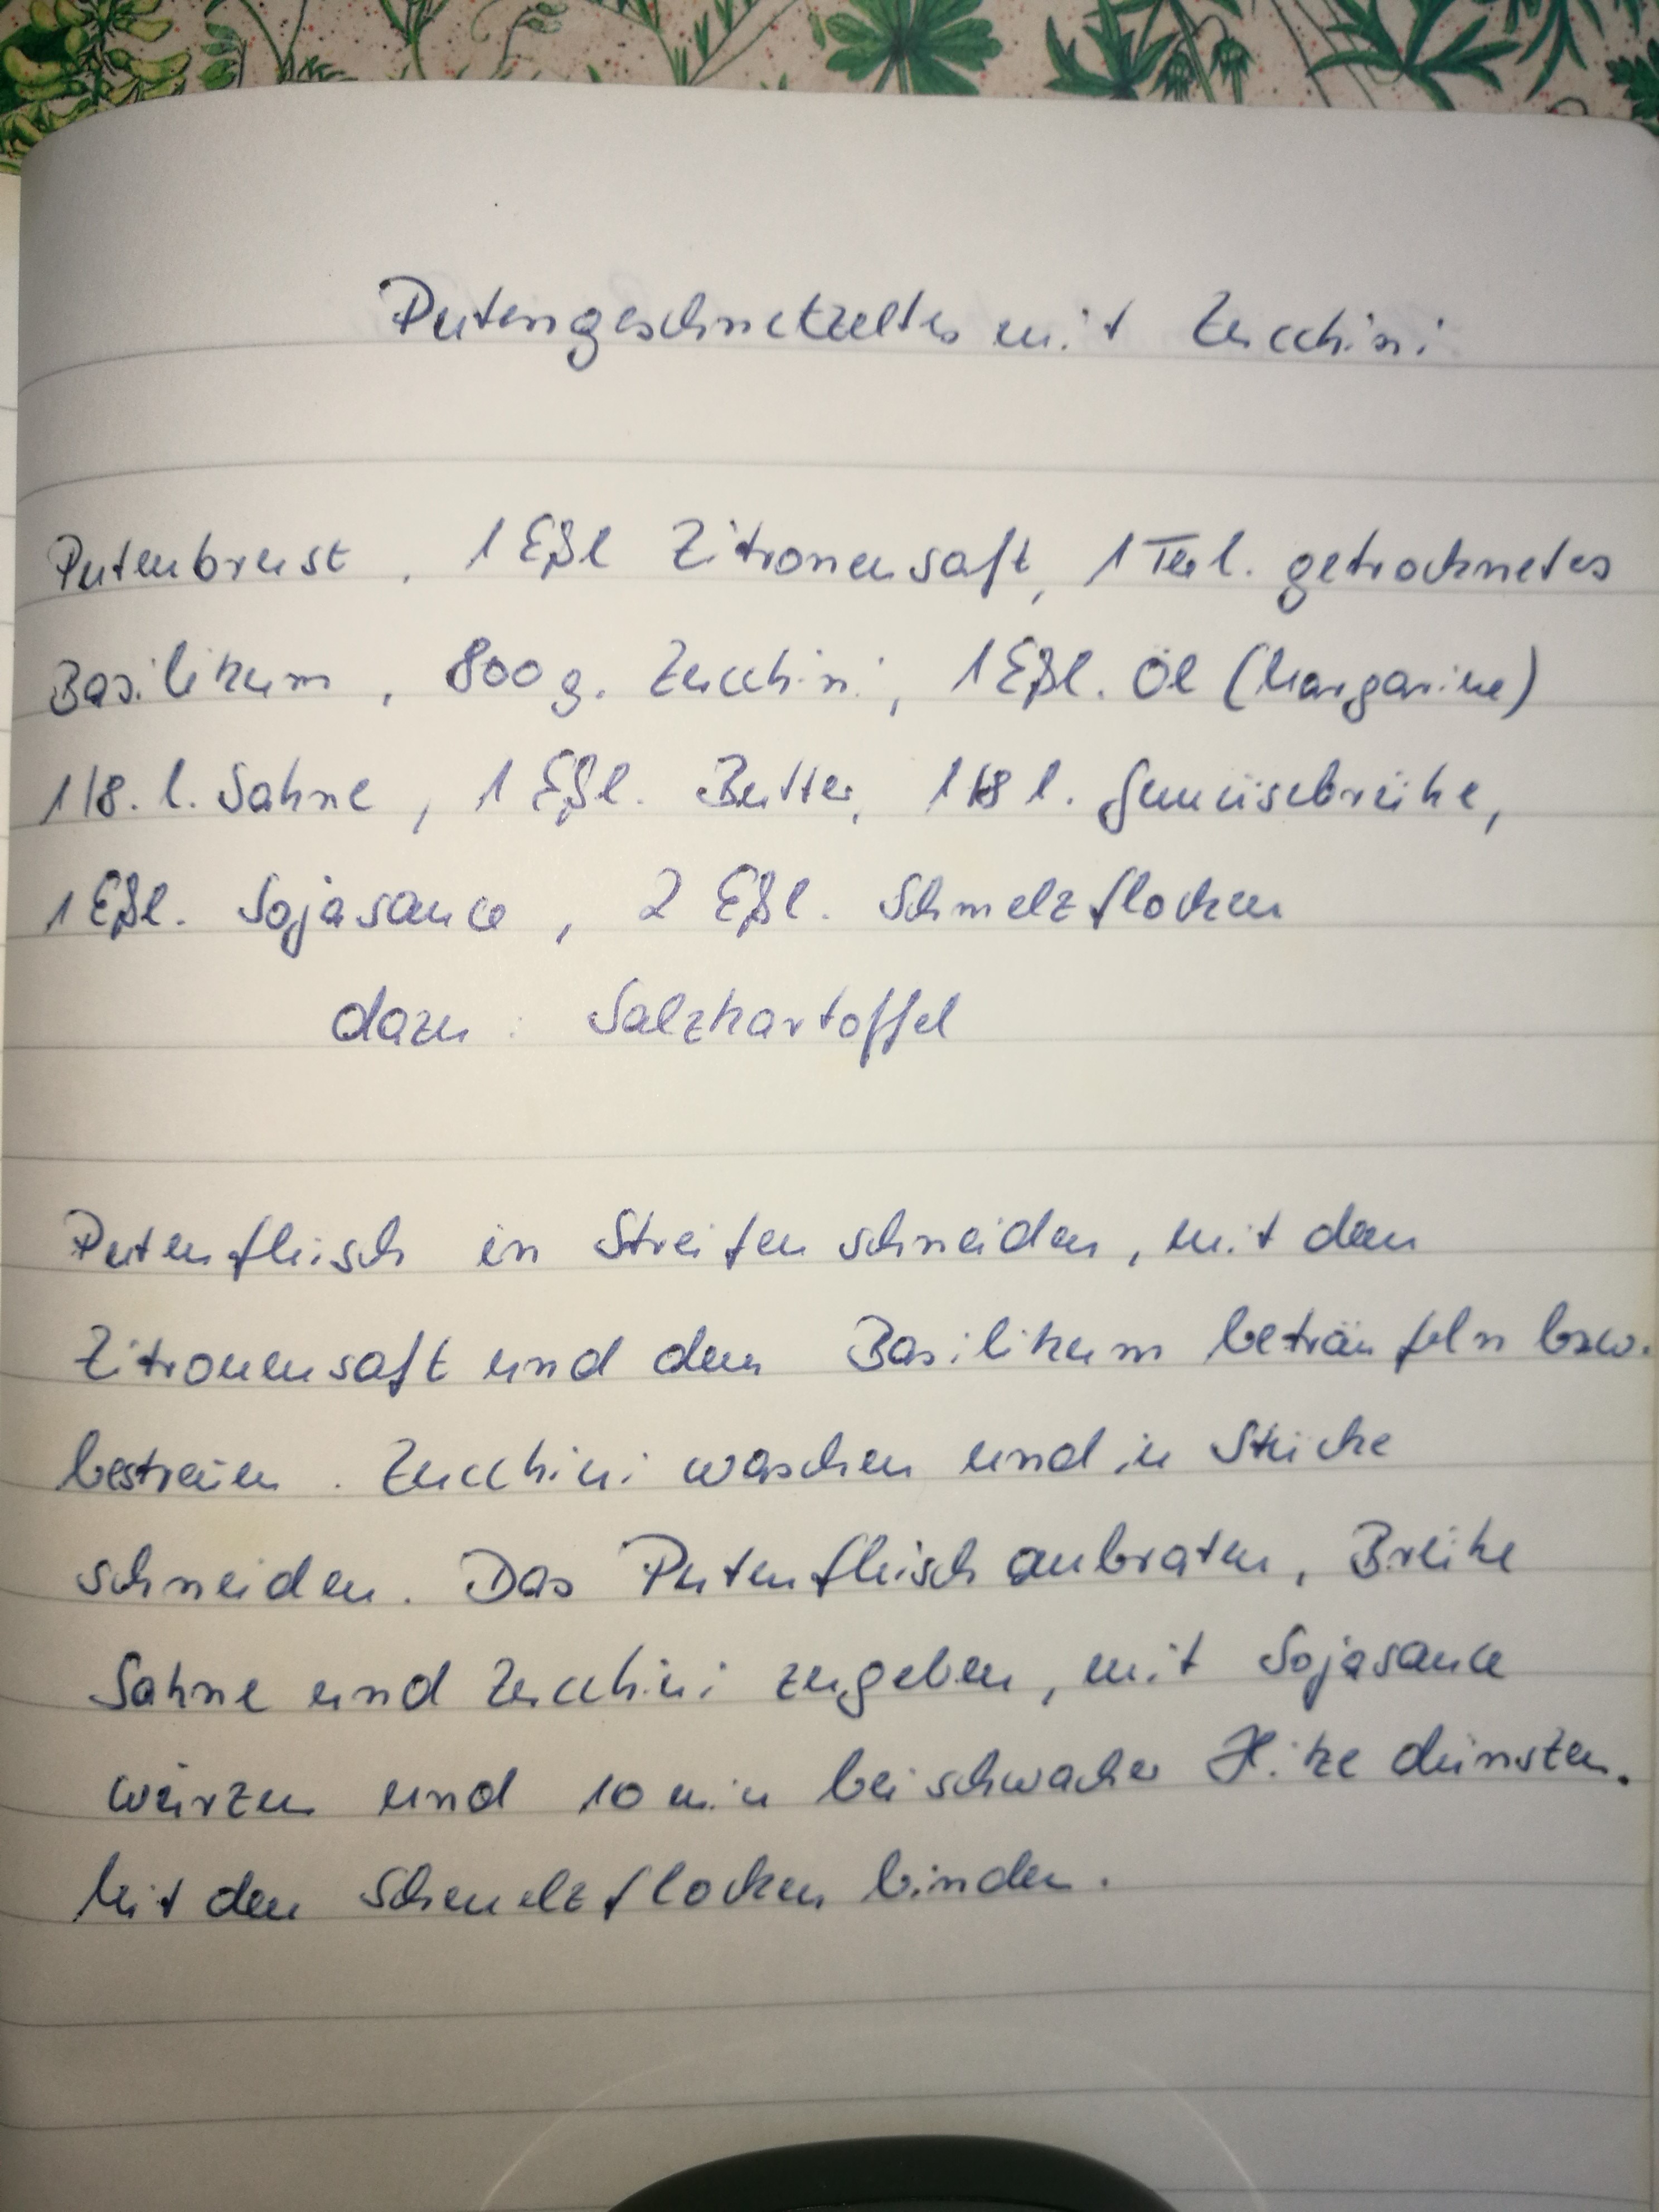 Putengeschnetzeltes mit Zucchini
Putenbrust, 1 Eßl Zitronensaft, 1 Teel. getrocknetes
Basilikum, 800 g. Zucchini, 1 Eßl. Öl (Margarine)
1/8. l. Sahne, 1 Eßl. Butter, 1/8 l. Gemüsebrühe,
1 Eßl. Sojasauce, 2 Eßl. Schmelzflocken
dazu: Salzkartoffel
Putenfleisch in Streifen schneiden, mit den
Zitronensaft und den Basilikum beträufeln bzw.
bestreuen. Zucchini waschen und in Stücke
schneiden. Das Putenfleisch anbraten, Brühe
Sahne und Zucchini zugeben, mit Sojasauce
würzen und 10 min bei schwacher Hitze dünsten.
Mit den Schmelzflocken binden.